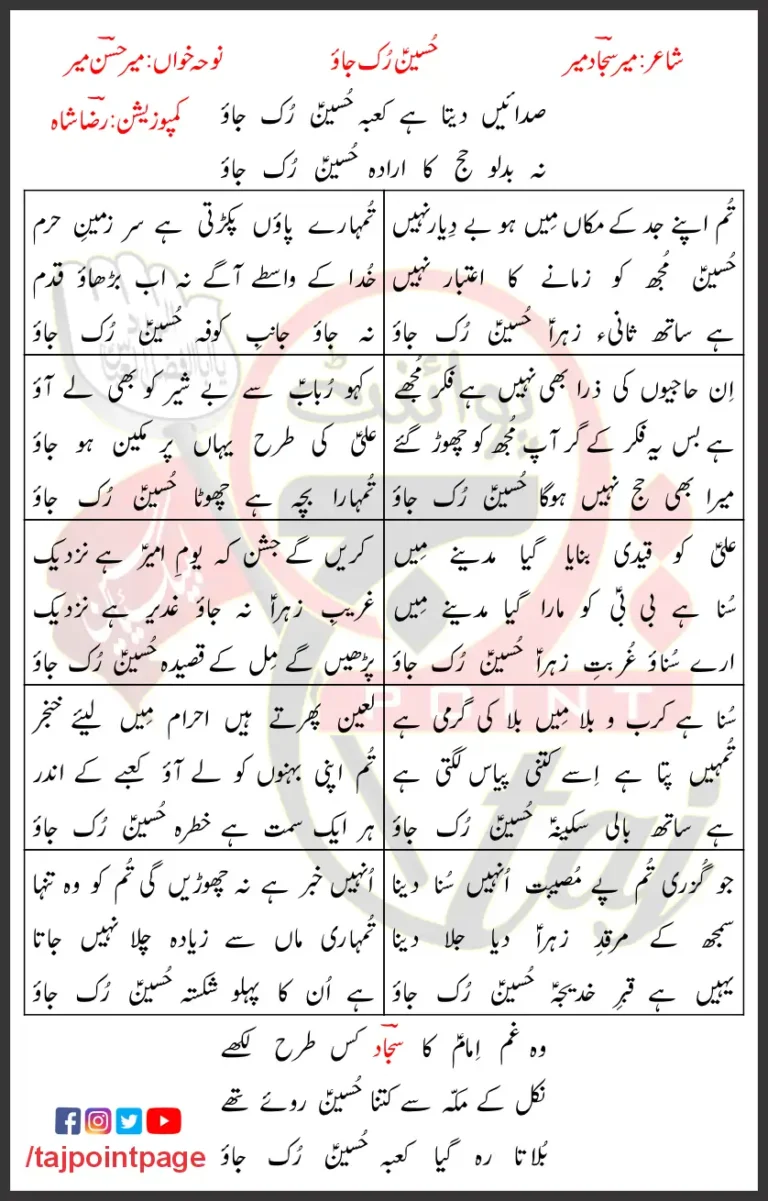 شاعر: میر سجاد میر
حُسینؑ رُک جاؤ
نوحہ خواں: میر حسن میر
کمپوزیشن: رضا شاہ
صدائیں دیتا ہے کعبہ حُسینؑ رُک جاؤ
نہ بدلو حج کا ارادہ حُسینؑ رُک جاؤ
تُم اپنے جد کے مکاں مِیں ہو بے دِیار نہیں
حُسینؑ مُجھ کو زمانے کا اعتبار نہیں
ہے ساتھ ثانیء زہراؑ حُسینؑ رُک جاؤ
تُمہارے پاؤں پکڑتی ہے سر زمینِ حرم
خُدا کے واسطے آگے نہ اب بڑھاؤ قدم
نہ جاؤ جانبِ کوفہ حُسینؑ رُک جاؤ
اِن حاجیوں کی ذرا بھی نہیں ہے فکر مُجھے
ہے بس یہ فکر کے گر آپ مُجھ کو چھوڑ گئے
میرا بھی حج نہیں ہوگا حُسینؑ رُک جاؤ
کہو رُبابؑ سے بے شیر کو بھی لے آؤ
علیؑ کی طرح یہاں پر مکین ہو جاؤ
تُمہارا بچہ ہے چھوٹا حُسینؑ رُک جاؤ
علیؑ کو قیدی بنایا گیا مدینے مِیں
سُنا ہے بی بیؑ کو مارا گیا مدینے مِیں
ارے سُناؤ غُربتِ زہراؑ حُسینؑ رُک جاؤ
کریں گے جشن کہ یومِ امیرؑ ہے نزدیک
غریبِ زہراؑ نہ جاؤ غدیر ہے نزدیک
پڑھیں گے مِل کے قصیدہ حُسینؑ رُک جاؤ
سُنا ہے کرب و بلا مِیں بلا کی گرمی ہے
تُمہیں پتا ہے اِسے کتنی پیاس لگتی ہے
ہے ساتھ بالی سکینہؑ حُسینؑ رُک جاؤ
لعین پھرتے ہیں احرام مِیں لیئے خنجر
تُم اپنی بہنوں کو لے آؤ کعبے کے اندر
ہر ایک سمت ہے خطرہ حُسینؑ رُک جاؤ
جو گُزری تُم پے مُصیبت اُنہیں سُنا دینا
سمجھ کے مرقدِ زہراؑ دیا جلا دینا
یہیں ہے قبرِ خدیجہؑ حُسینؑ رُک جاؤ
اُنہیں خبر ہے نہ چھوڑیں گی تُم کو وہ تنہا
تُمہاری ماں سے زیادہ چلا نہیں جاتا
ہے اُن کا پہلو شکستہ حُسینؑ رُک جاؤ
وہ غم اِمامؑ کا سجاد کس طرح لکھے
نکل کے مکّہ سے کتنا حُسینؑ روئے تھے
بُلاتا رہ گیا کعبہ حُسینؑ رُک جاؤ
/tajpointpage
پوائنٹ
POINT
taj